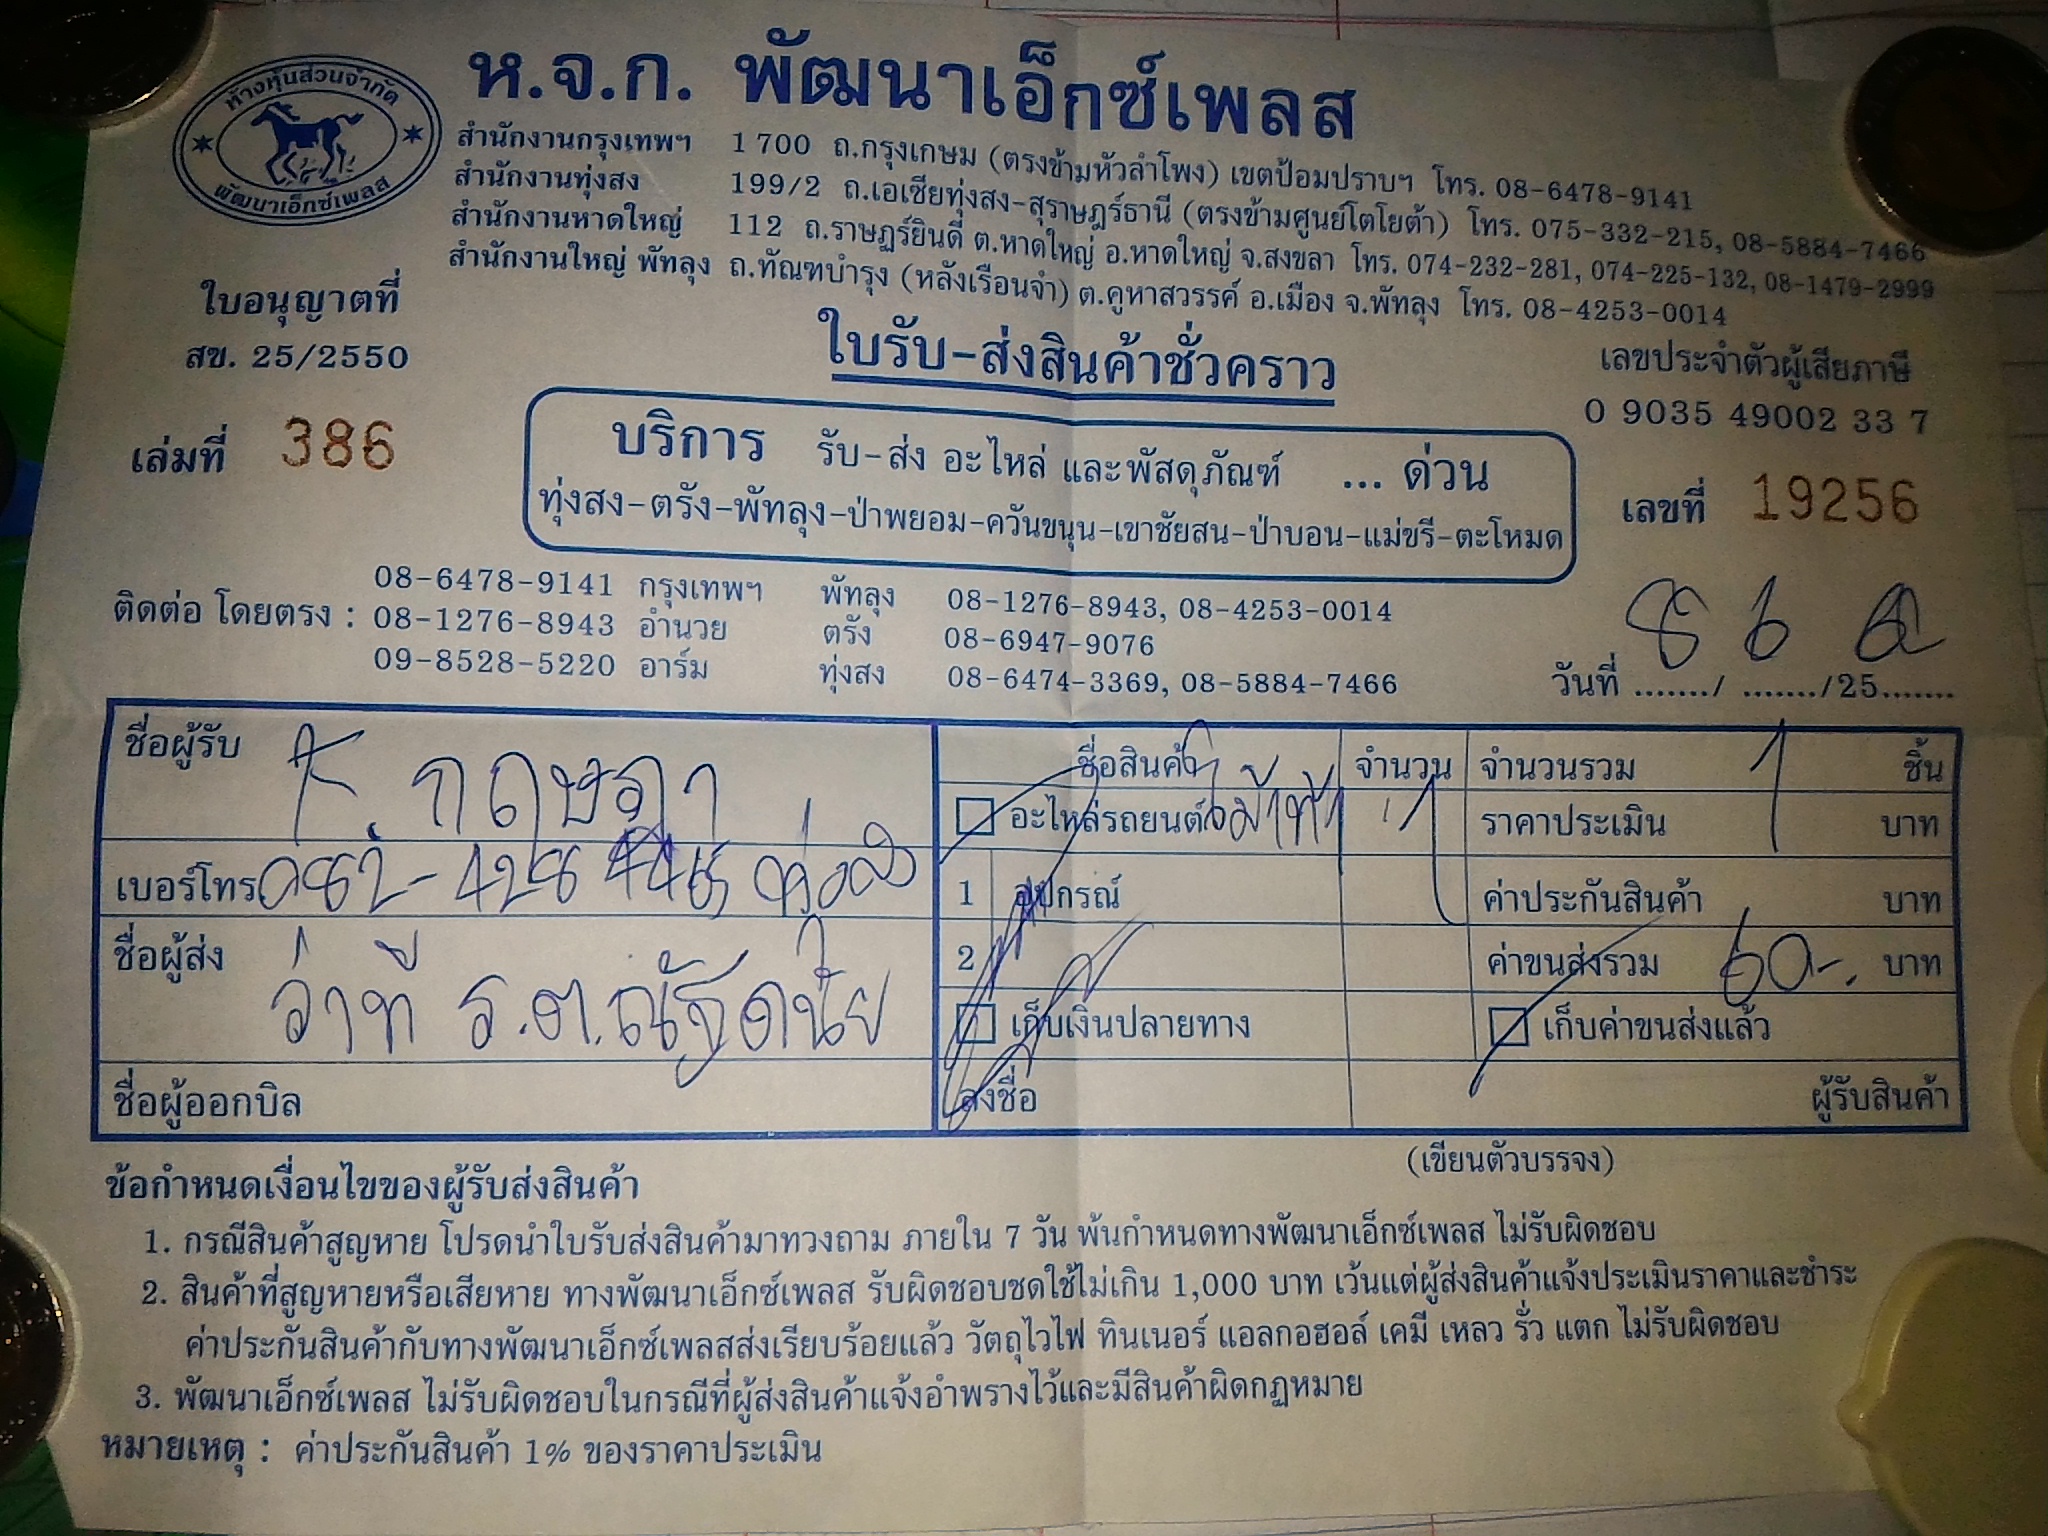 ห้างหุ้นส่วนจำกัด
พัฒนาเอ็กซ์เพลส
ห.จ.ก. พัฒนาเอ็กซ์เพลส
สำนักงานกรุงเทพฯ 1700 ถ.กรุงเกษม (ตรงข้ามหัวลำโพง) เขตป้อมปราบฯ โทร. 08-6478-9141
สำนักงานทุ่งสง 199/2 ถ.เอเซียทุ่งสง-สุราษฎร์ธานี (ตรงข้ามศูนย์โตโยต้า) โทร. 075-332-215, 08-5884-7466
สำนักงานหาดใหญ่ 112 ถ.ราษฎร์ยินดี ต.หาดใหญ่ อ.หาดใหญ่ จ.สงขลา โทร. 074-232-281, 074-225-132, 08-1479-2999
สำนักงานใหญ่ พัทลุง ถ.ทัณฑบำรุง (หลังเรือนจำ) ต.คูหาสวรรค์ อ.เมือง จ.พัทลุง โทร. 08-4253-0014
ใบอนุญาตที่
สข. 25/2550
ใบรับ-ส่งสินค้าชั่วคราว
เลขประจำตัวผู้เสียภาษี
0 9035 49002 33 7
เล่มที่ 386
บริการ รับ-ส่ง อะไหล่ และพัสดุภัณฑ์ ... ด่วน
ทุ่งสง-ตรัง-พัทลุง-ป่าพยอม-ควันขนุน-เขาชัยสน-ป่าบอน-แม่ขรี-ตะโหมด
เลขที่ 19256
ติดต่อ โดยตรง : 08-6478-9141 กรุงเทพฯ พัทลุง 08-1276-8943, 08-4253-0014
08-1276-8943 อำนวย ตรัง 08-6947-9076
09-8528-5220 อาร์ม ทุ่งสง 08-6474-3369, 08-5884-7466
วันที่ 8 / 6 /25
ชื่อผู้รับ K. กฤษฎา
เบอร์โทร 082-428 ทุ่งสง
ชื่อผู้ส่ง ว่าที่ ร.ต.ณัฐดนัย
ชื่อผู้ออกบิล
ชื่อสินค้า จำนวน จำนวนรวม 1 ชิ้น
อะไหล่รถยนต์ 1 ราคาประเมิน บาท
1 อุปกรณ์ ค่าประกันสินค้า บาท
2 ค่าขนส่งรวม 60.- บาท
เก็บเงินปลายทาง เก็บค่าขนส่งแล้ว
ลงชื่อ ผู้รับสินค้า
(เขียนตัวบรรจง)
ข้อกำหนดเงื่อนไขของผู้รับส่งสินค้า
1. กรณีสินค้าสูญหาย โปรดนำใบรับส่งสินค้ามาทวงถาม ภายใน 7 วัน พ้นกำหนดทางพัฒนาเอ็กซ์เพลส ไม่รับผิดชอบ
2. สินค้าที่สูญหายหรือเสียหาย ทางพัฒนาเอ็กซ์เพลส รับผิดชอบชดใช้ไม่เกิน 1,000 บาท เว้นแต่ผู้ส่งสินค้าแจ้งประเมินราคาและชำระ
ค่าประกันสินค้ากับทางพัฒนาเอ็กซ์เพลสส่งเรียบร้อยแล้ว วัตถุไวไฟ ทินเนอร์ แอลกอฮอล์ เคมี เหลว รั่ว แตก ไม่รับผิดชอบ
3. พัฒนาเอ็กซ์เพลส ไม่รับผิดชอบในกรณีที่ผู้ส่งสินค้าแจ้งอำพรางไว้และมีสินค้าผิดกฎหมาย
หมายเหตุ : ค่าประกันสินค้า 1% ของราคาประเมิน